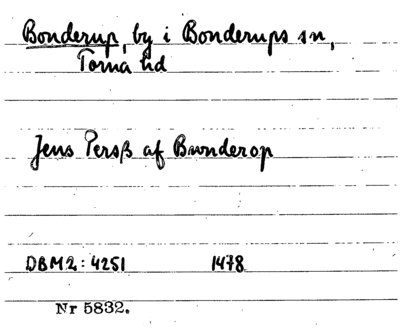 Bonderup, by i Bonderups sn,
Torna hd
Jens Persß af Bwnderop
DBM2: 4251 1478
Nr 5832.